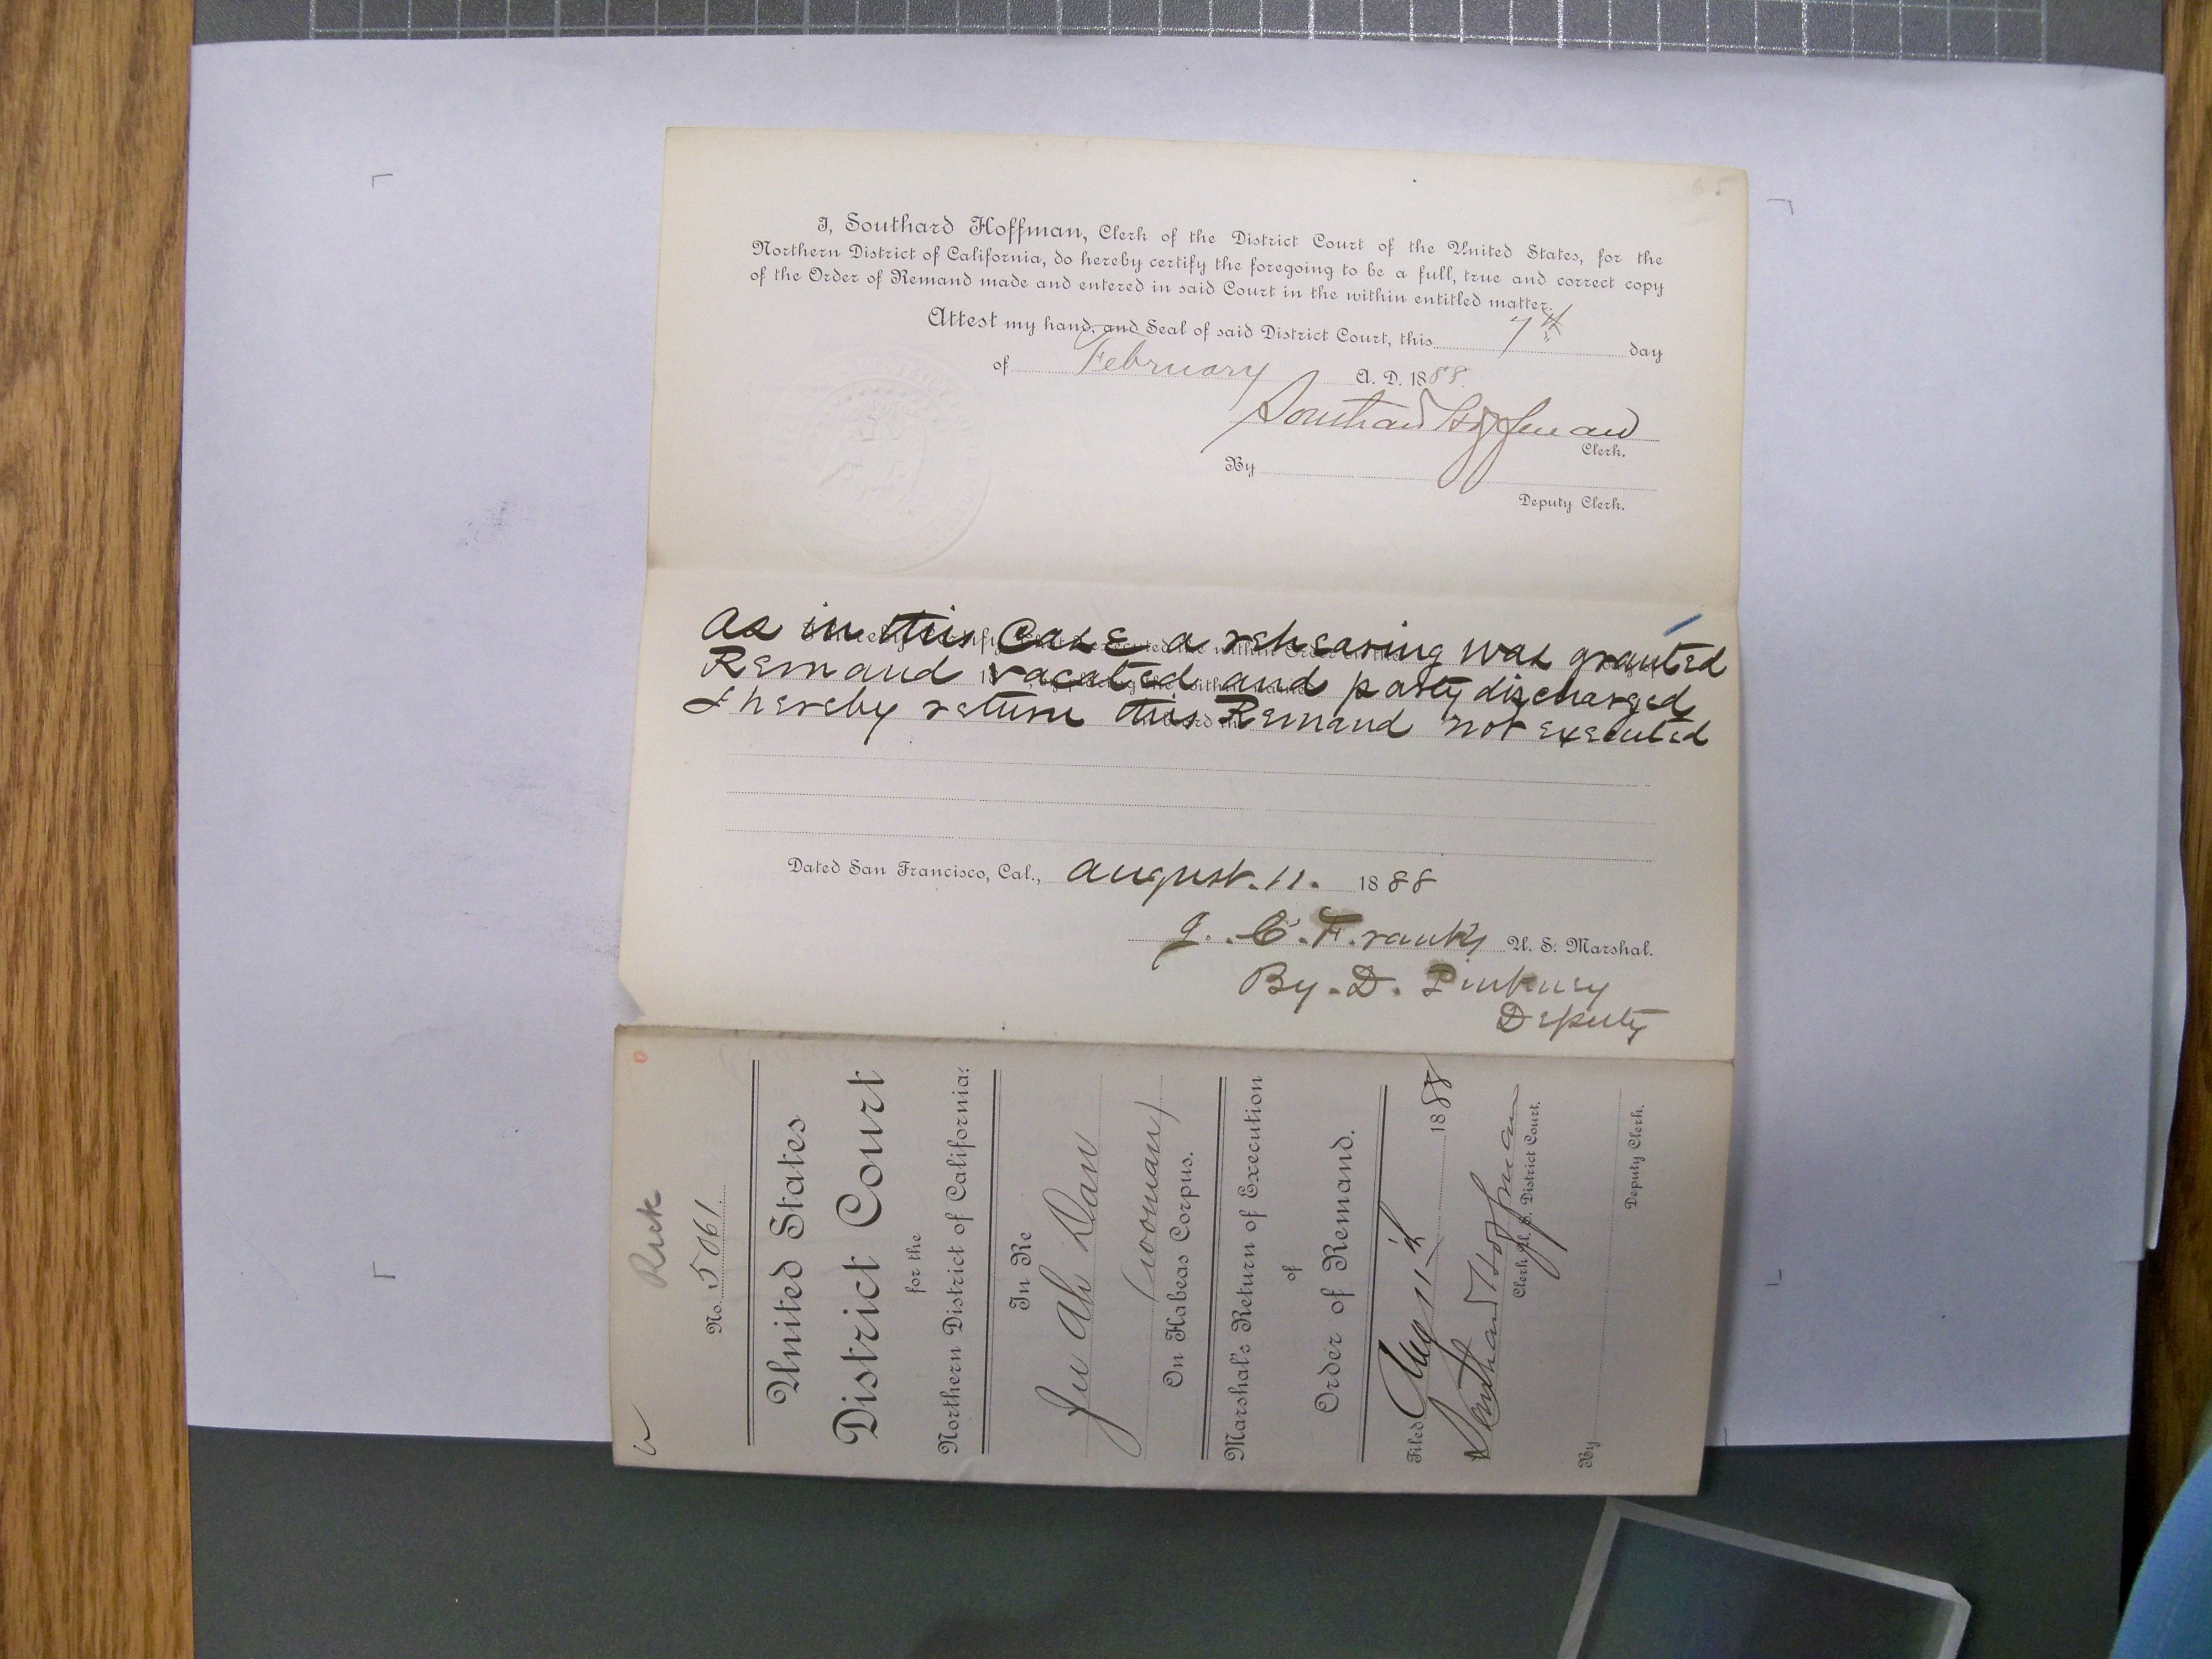 I, Southard Hoffman, Clerk of the District Court of the United States, for the
Northern District of California, do hereby certify the foregoing to be a full, true and correct copy
of the Order of Remand made and entered in said Court in the within entitled matter.
Attest my hand and Seal of said District Court, this 7th day
of February A. D. 1888.
Southard Hoffman
Clerk.
By
Deputy Clerk.
As in this Case a rehearing was granted
Remand vacated and party discharged
I hereby return this Remand not executed
Dated San Francisco, Cal., August. 11. 1888
J. C. Franks U. S. Marshal.
By. D.
Deputy
No. 5061.
United States
District Court
for the
Northern District of California.
In Re
Ah
(woman)
On Habeas Corpus.
Marshal's Return of Execution
of
Order of Remand.
Filed Aug 11th 1888
Southard Hoffman
Clerk U. S. District Court.
By
Deputy Clerk.